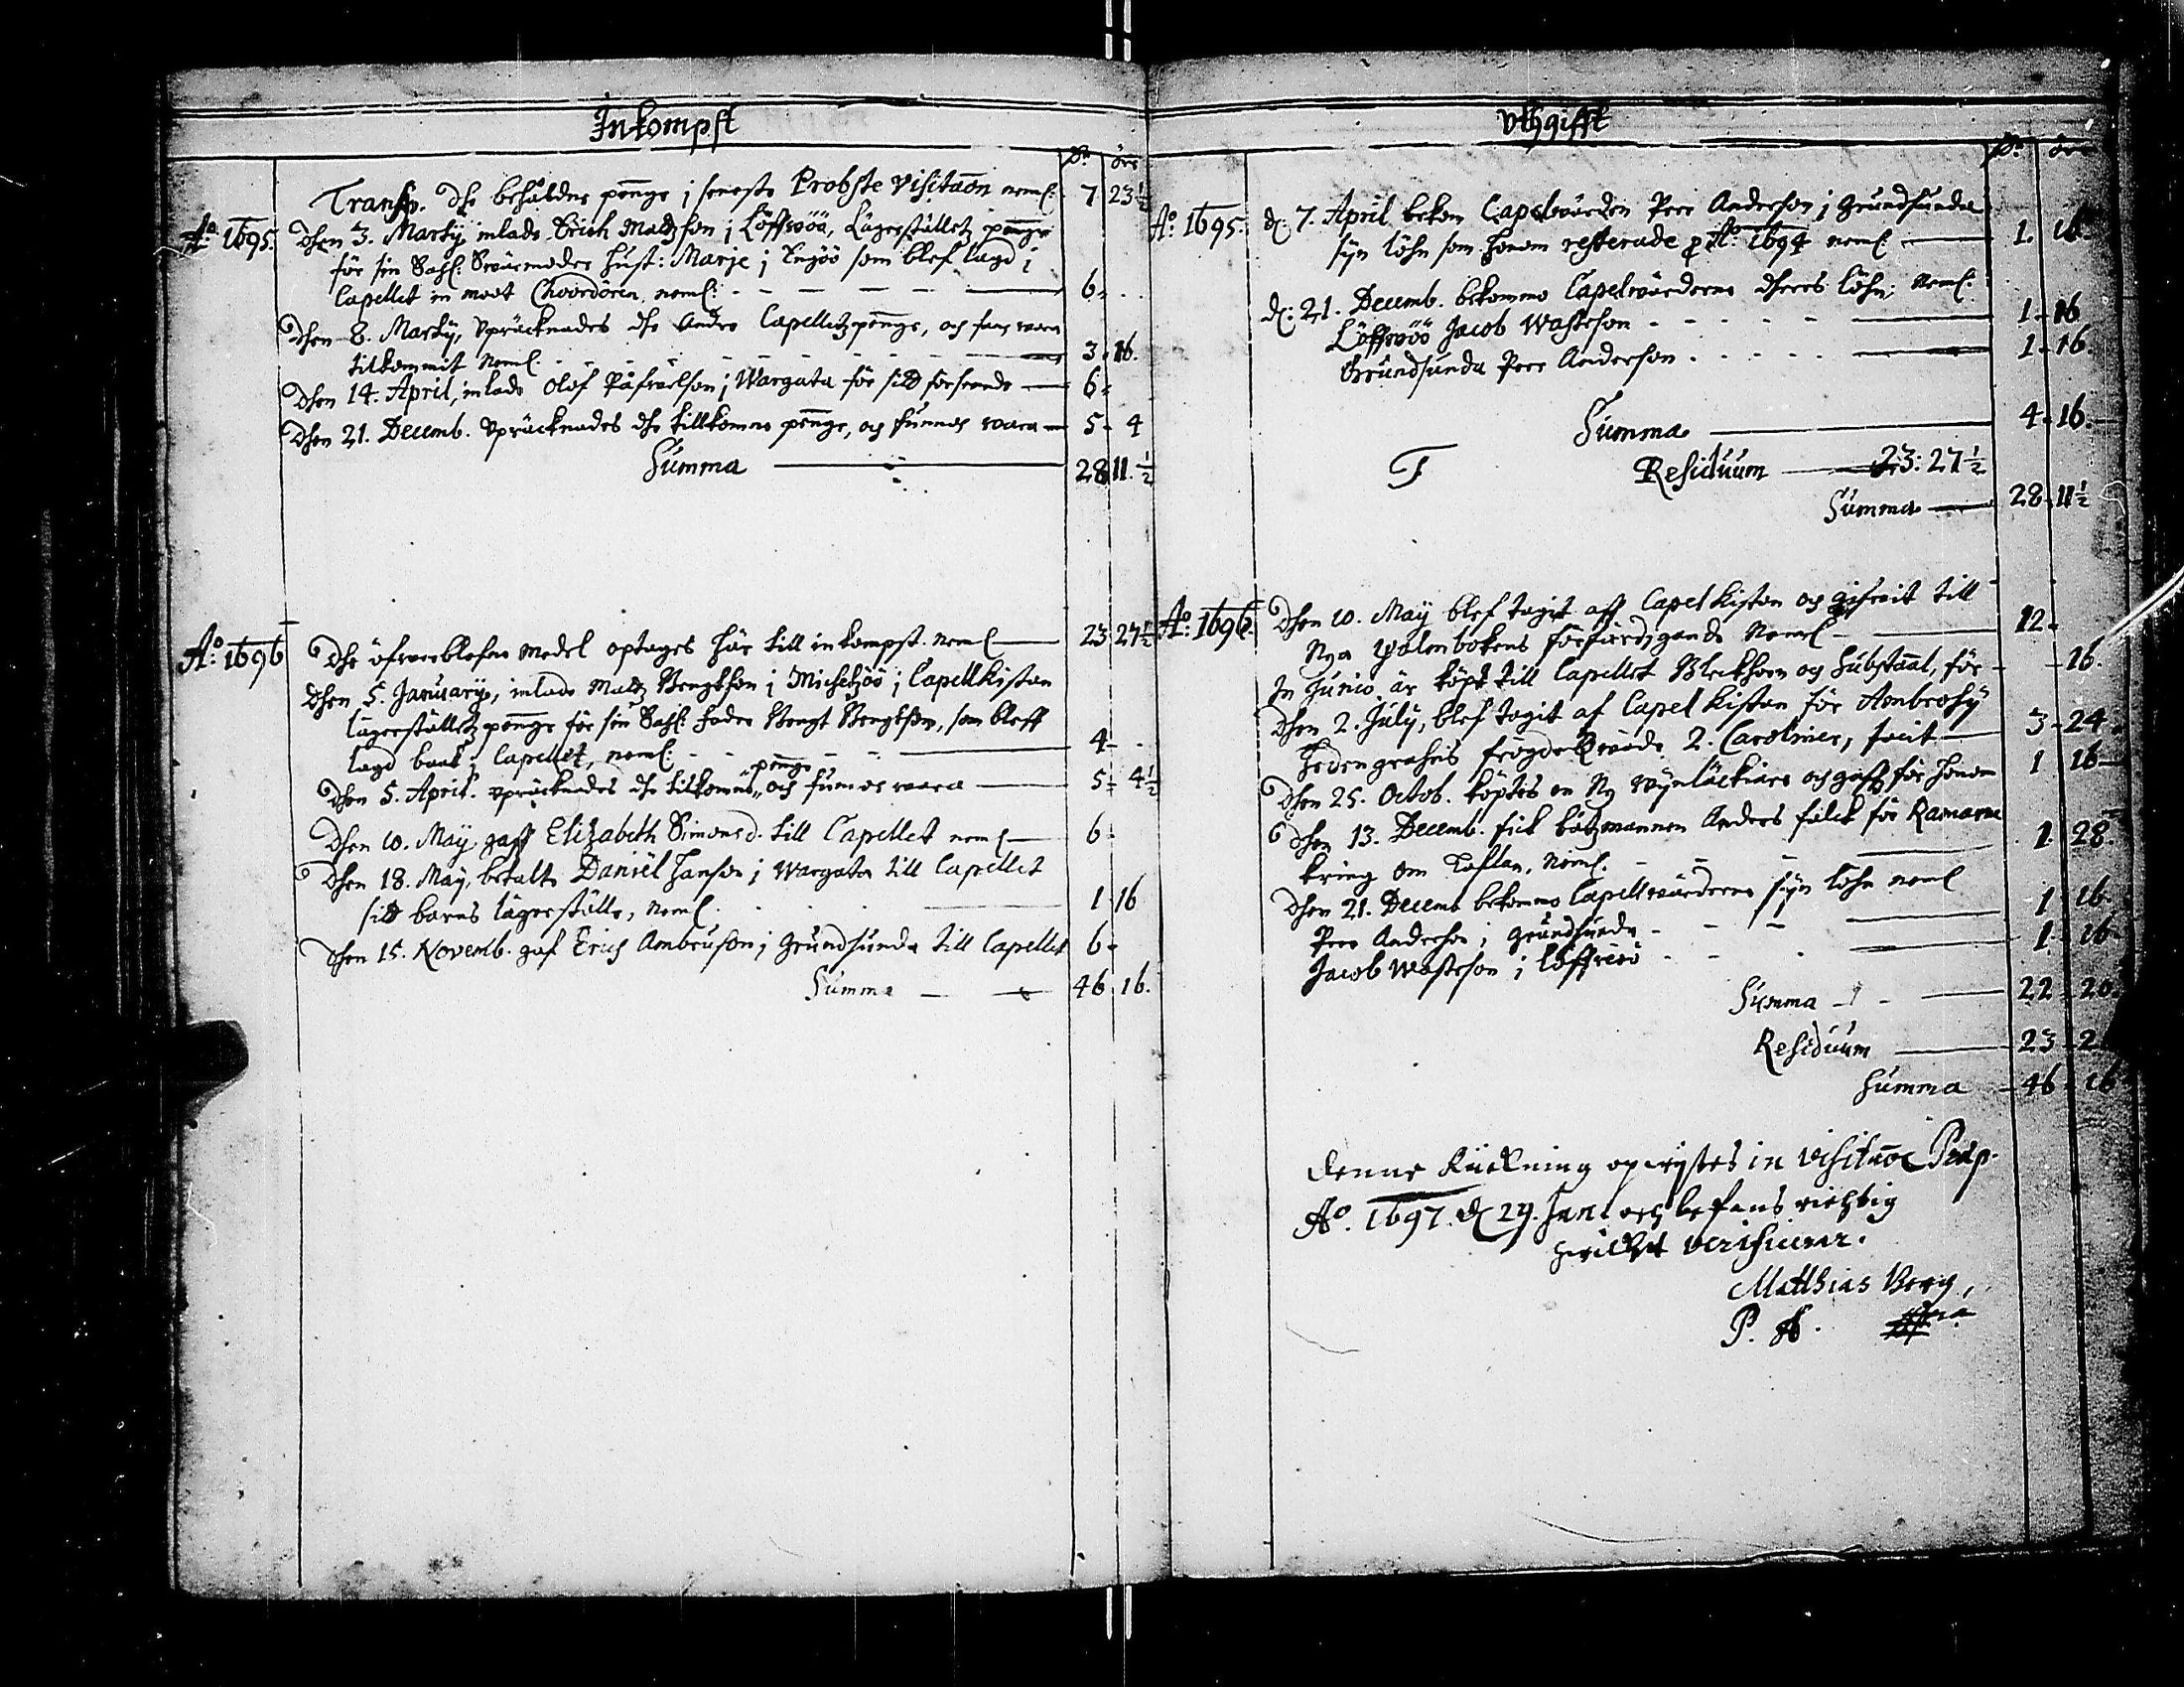 Inkompst
Dr öre
Transp. dhe behåldne penge i seneste Probste Visitaon neml: 7 23½
Ao: 1695. Dhen 3. Martij inlade Erich Matzson i Löffwöö, Lägerställetz penge
för sin Sahl: Swärmoder hust: Marje i Engöö som blef lagd i
Capellet in moot Choordören neml: 6-
Dhen 8. Martij, Vpräcknades dhe Andre Capelletz penge, och fans wara
tilkommit Neml. 3-16.
Dhen 14. April, inlade Olof Påfwelson i Wargata för sitt förseende 6-
Dhen 21. Decemb. Vpräcknades dhe tillkomne penge, och funnos wara 5-4
Summa 28 11.½
Ao: 1696 Dhe öfwerblefne medel optages här till inkompst. neml 23 27½
Dhen 5. January, inlade Matz Bengtson i Michelzöö i Capellkistan
lägerställetz penge för sin Sahl: fader Bengt Bengtson, som bleff
lagd baak i Capellet, neml: 4-
penge
Dhen 5. April. vpräcknades dhe tilkomne och funnos wara 5-4½
Dhen 10. Maij gaff Elizabeth Simonsd. till Capellet neml 6-
Dhen 18. Maij, betalte Daniel Hanson i Wargata till Capellet
sitt barns lägerställe, neml. 1 16
Dhen 15. Novemb. gaf Erich Ambruson i Grundsunda till Capellet 6-
Summa 46 16.
Vthgifft
Dr öre
Ao: 1695. d: 7. April bekom Capelwärden Peer Anderson i Grundsunda
syn löhn som honom resterade p Ao: 1694 neml: 1. 16
d: 21. Decemb. bekommo Capelwärderne dheres löhn, neml:
Löffwöö Jacob Wasteson 1-16
Grundsunda Peer Anderson 1-16.
Summa 4-16.
Residuum 23: 27½
Summa 28-11½
Ao: 1696. Dhen 10. Maij blef tagit aff Capel Kistan och gifwit till
Nya Psalmbokens förfärdigande Neml 12-
In Junio är köpt till Capellet Bleckhorn och Substaal, för -16.
Dhen 2. July, blef tagit af Capel Kistan för Ambrosij
Hedengrahns frögde 2. Caroliner, facit 3-24
Dhen 25. Octob. köptes en Ny wynläckiare och gafs för honom 1 16
Dhen 13. Decemb. fick båtzmannen Anders falck för Ramarne
kring om Taflan, Neml. 1-28.
Dhen 21. Decemb bekommo Capellwärderne syn löhn neml
Peer Anderson i Grundsunda 1 16
Jacob Wasteson i Löffwöö 1-16
Summa 22-20.
Residuum 23-2
Summa 46-16
Denne Räckning opwijstes in Visitaõe Præp.
Ao. 1697. d 29. Jan. och befans richtig
hwilket verificerar.
Matthias Berg,
P. A.